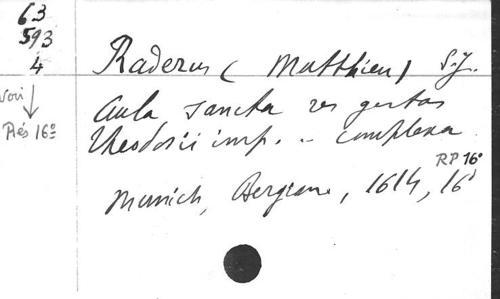 63
593
4
Raderus (Matthieu) S.J.
voir
Rés 16°
Aula sancta res gestas
Theodosii imp. .. complexa
RP 16°
Munich, Bergiana, 1614, 16°